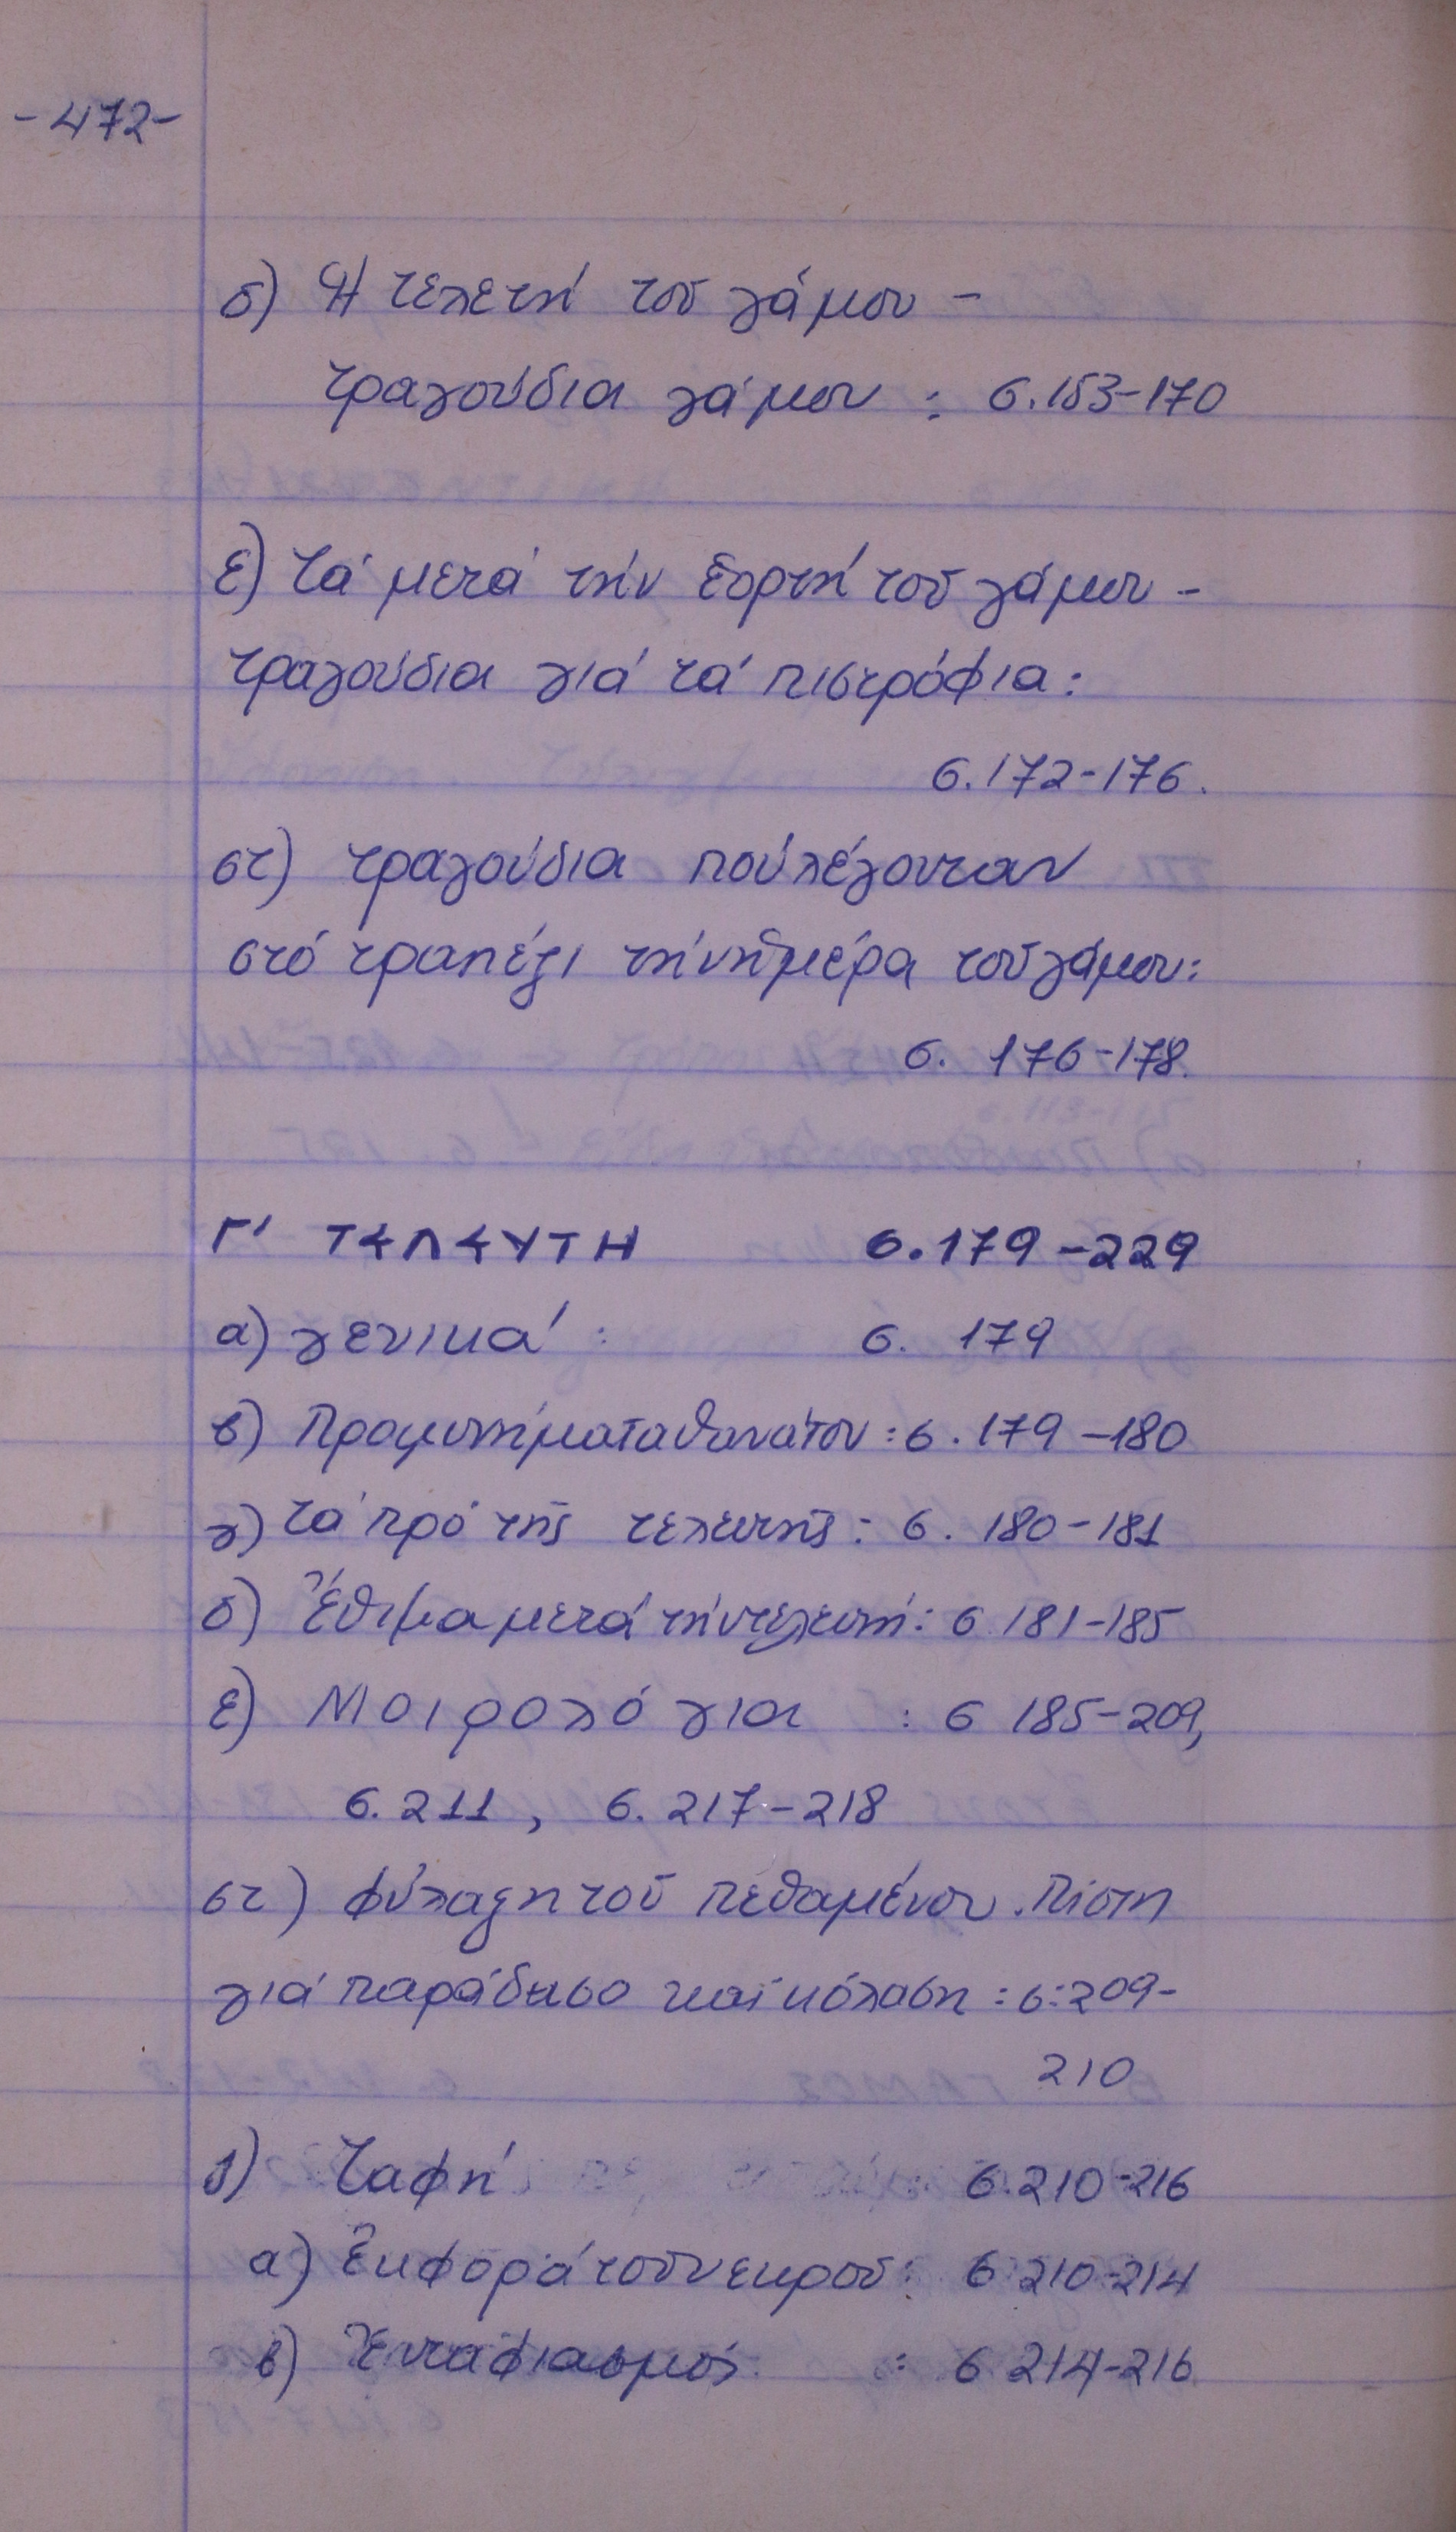 -472-
δ) Ἡ τελετή τοῦ γάμου -
τραγούδια γάμου : σ.153-170
ε) Τά μετά τήν ἑορτή τοῦ γάμου -
τραγούδια γιά τά πιστρόφια:
σ.172-176.
στ) τραγούδια πού λέγονταν
στό τραπέζι τήν ἡμέρα τοῦ γάμου:
σ. 176-178.
Γ' ΤΕΛΕΥΤΗ σ.179-229
α) γενικά : σ. 179
β) Προμηνήματα θανάτου : σ. 179-180
γ) τά πρό τῆς τελευτῆς : σ. 180-181
δ) Ἔθιμα μετά τήν τελευτή : σ 181-185
ε) Μοιρολόγια : σ 185-209,
σ. 211 , σ. 217-218
στ) φύλαξη τοῦ πεθαμένου. Πίστη
γιά παράδεισο καί κόλαση : σ. 209-
210
ζ) Ταφή : σ. 210-216
α) Ἐκφορά τοῦ νεκροῦ : σ 210-214
β) Ἐνταφιασμός : σ 214-216